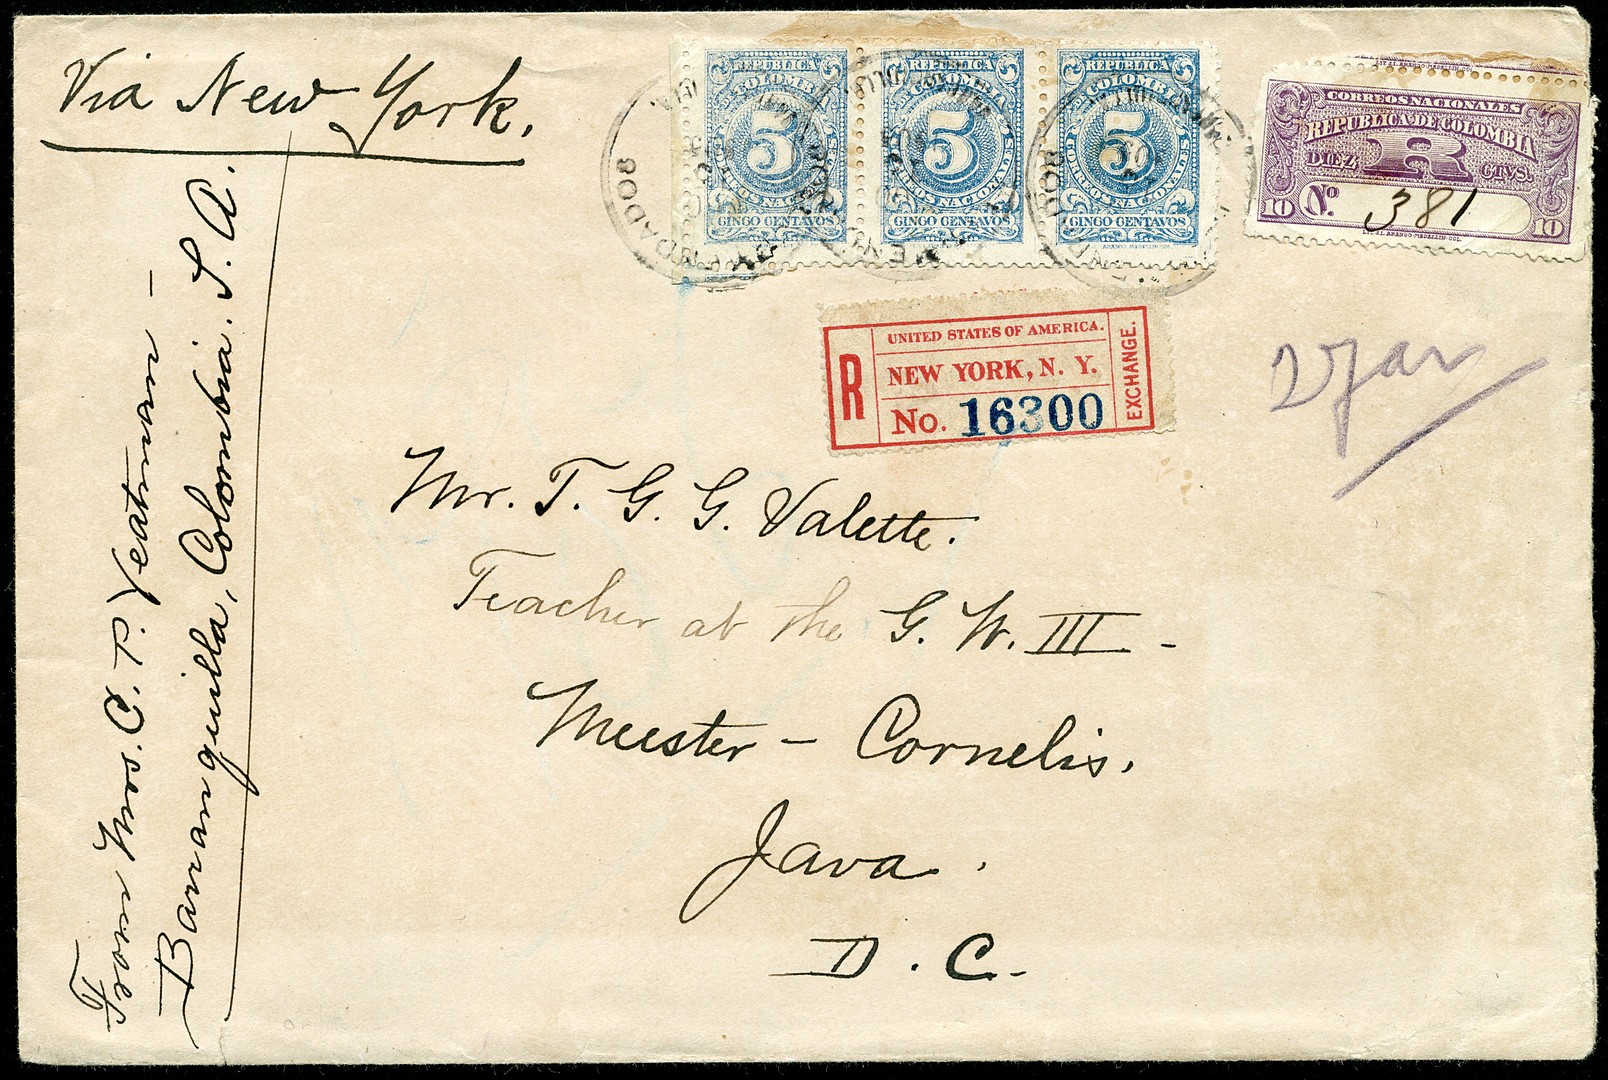 Via New York.
REPUBLICA
DE COLOMBIA
5
CORREOS NACIONALES
CINCO CENTAVOS
REPUBLICA
DE COLOMBIA
5
CORREOS NACIONALES
CINCO CENTAVOS
REPUBLICA
DE COLOMBIA
5
CORREOS NACIONALES
CINCO CENTAVOS
CORREOS NACIONALES
REPUBLICA DE COLOMBIA
DIEZ R CTVS.
No. 381
10 10
UNITED STATES OF AMERICA.
R NEW YORK, N. Y.
No. 16300
EXCHANGE.
Mr. T. G. G. Valette.
Teacher at the G. W. III -
Meester - Cornelis.
Java.
D. C.
From Mrs. C. T. Yeatman -
Barranquilla, Colombia. S. A.